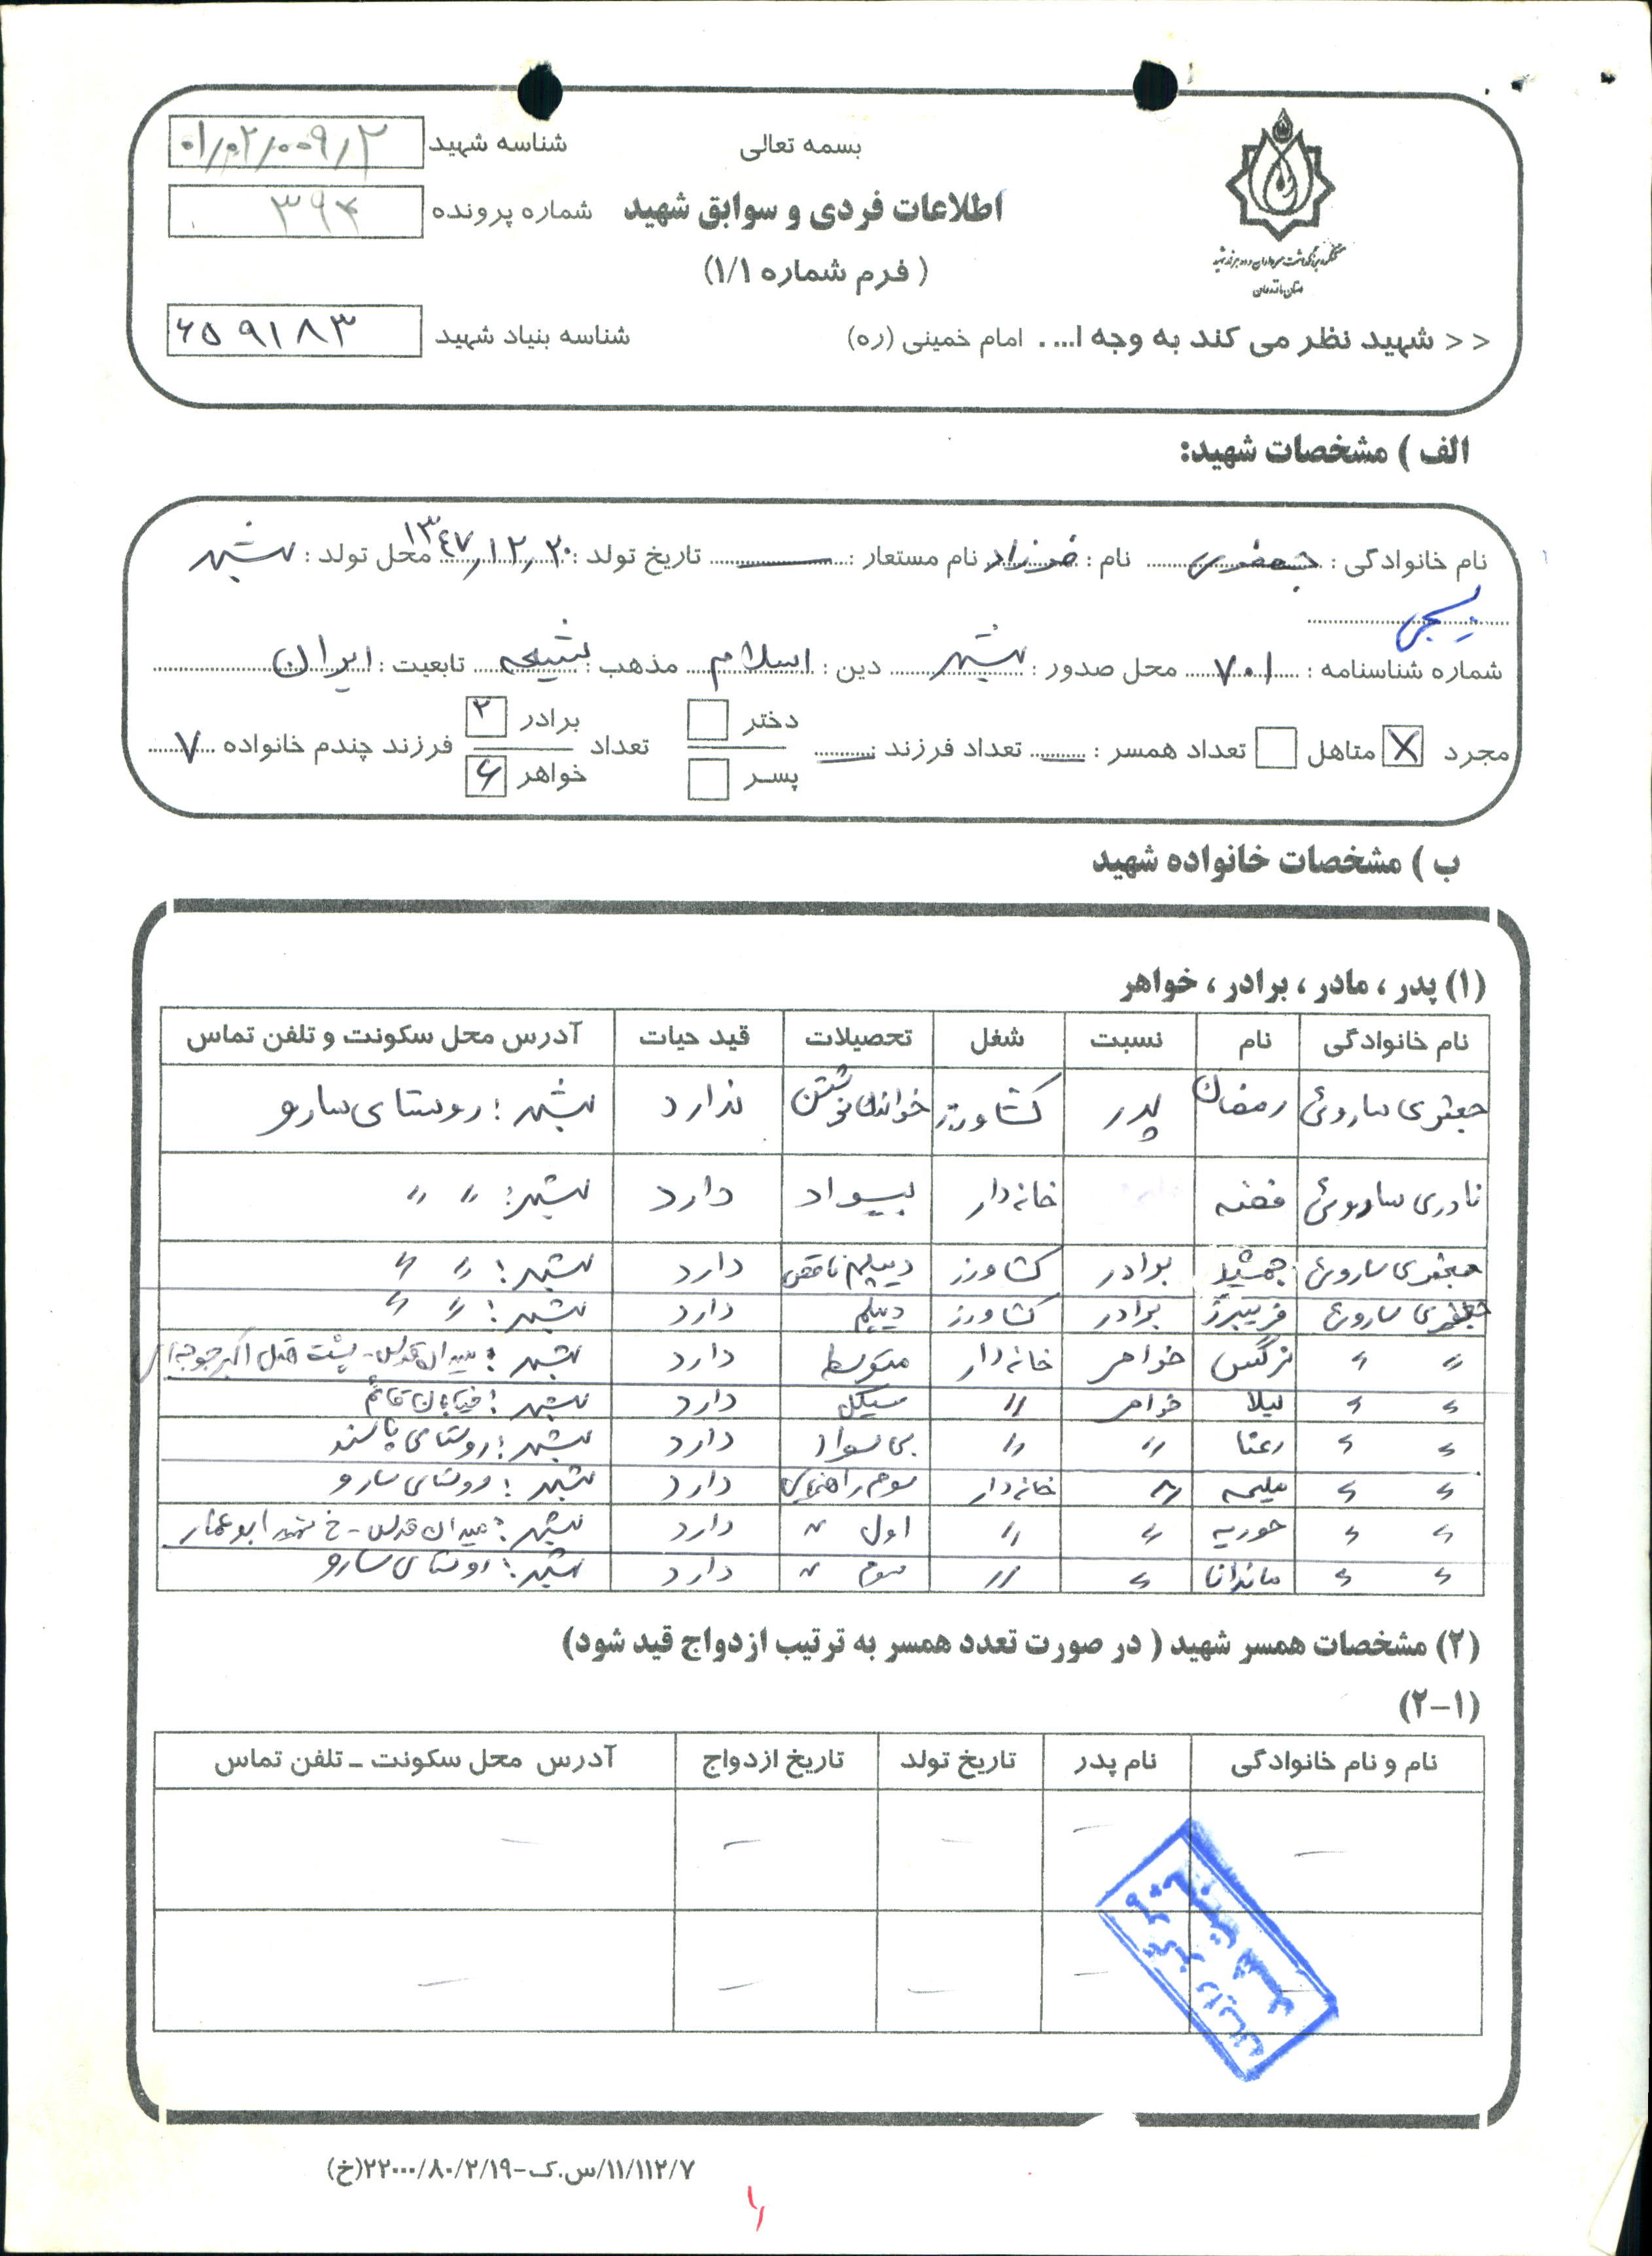 بسمه تعالی
شناسه شهید ۰۱/۰۲/۰۰۹/۲
اطلاعات فردی و سوابق شهید
شماره پرونده ۳۹۴
( فرم شماره ۱/۱)
<< شهید نظر می کند به وجه ا... . امام خمینی (ره)
شناسه بنیاد شهید ۶۵۹۱۸۳
الف ) مشخصات شهید:
نام خانوادگی : جعفری نام : فرزاد نام مستعار : ــ تاریخ تولد : ۱۳۴۷/۱۲/۲۰ محل تولد : بهشهر
بسیجی
شماره شناسنامه : ۷۰۱ محل صدور : بهشهر دین : اسلام مذهب : شیعه تابعیت : ایران
مجرد X متاهل تعداد همسر : ــ تعداد فرزند : ــ دختر پسر تعداد برادر ۲ خواهر ۶ فرزند چندم خانواده ۷
ب ) مشخصات خانواده شهید
(۱) پدر ، مادر ، برادر ، خواهر
نام خانوادگی نام نسبت شغل تحصیلات قید حیات آدرس محل سکونت و تلفن تماس
جعفری ساروئی رمضان پدر کشاورز خواندن نوشتن ندارد بهشهر : روستای سارو
نادری ساروئی فضه خانه دار بیسواد دارد بهشهر : " "
جعفری ساروئی جمشید برادر کشاورز دیپلم ناقص دارد بهشهر : " "
جعفری ساروئی فریبرز برادر کشاورز دیپلم دارد بهشهر : " "
" " نرگس خواهر خانه دار متوسطه دارد بهشهر : میدان قدس - پشت
" " لیلا خواهر " سیکل دارد بهشهر : خیابان قائم
" " رعنا " " بی سواد دارد بهشهر : روستای پاسند
" " ملیحه " خانه دار سوم راهنمایی دارد بهشهر : روستای سارو
" " حوریه " " اول " دارد بهشهر : میدان قدس - خ شهید ابوعمار
" " ماندانا " " سوم " دارد بهشهر : روستای سارو
(۲) مشخصات همسر شهید ( در صورت تعدد همسر به ترتیب ازدواج قید شود)
(۲-۱)
نام و نام خانوادگی نام پدر تاریخ تولد تاریخ ازدواج آدرس محل سکونت ـ تلفن تماس
ــ ــ ــ ــ ــ
ــ ــ ــ ــ
۱۱/۱۱۲/۷/س.ک-۲۲۰۰۰/۸۰/۲/۱۹(خ)